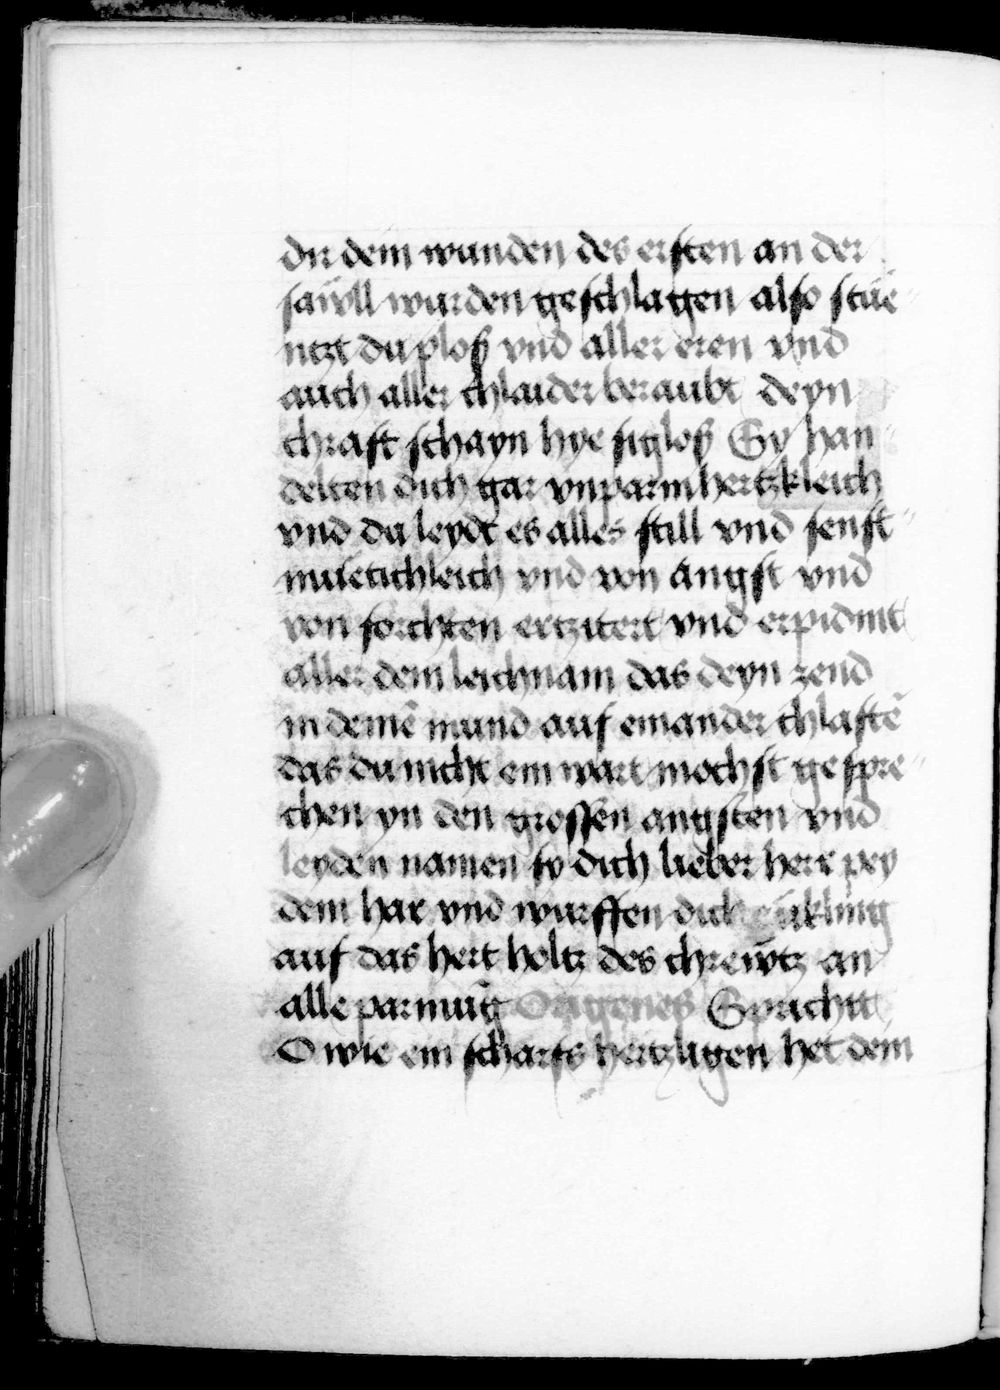 dir dem wunden des ersten an der
saẅll wurden geschlagen also stüe
ntzt du plosß vnd aller eren vnd
auch aller chlaider beraubt deyn
chraft schayn hye siglosß Sy han
delten dich gar vnparmhertzkleich
vnd du leydt es alles still vnd senft
muetichleich vnd von angst vnd
von forchten ertzitert vnd erpidmt
aller dein leichnam das deyn zend
in deinē mund auf einander chlaftē
das du nicht ein wart mochst gespre
chen yn den grossen angsten vnd
leyden namen sy dich lieber herr pey
dem har vnd wurffen dich rükling
auf das hert holtz des chrewtz an
alle parmūg Origenes Sprichtt
O wie ein scharfs hertzligen het dein